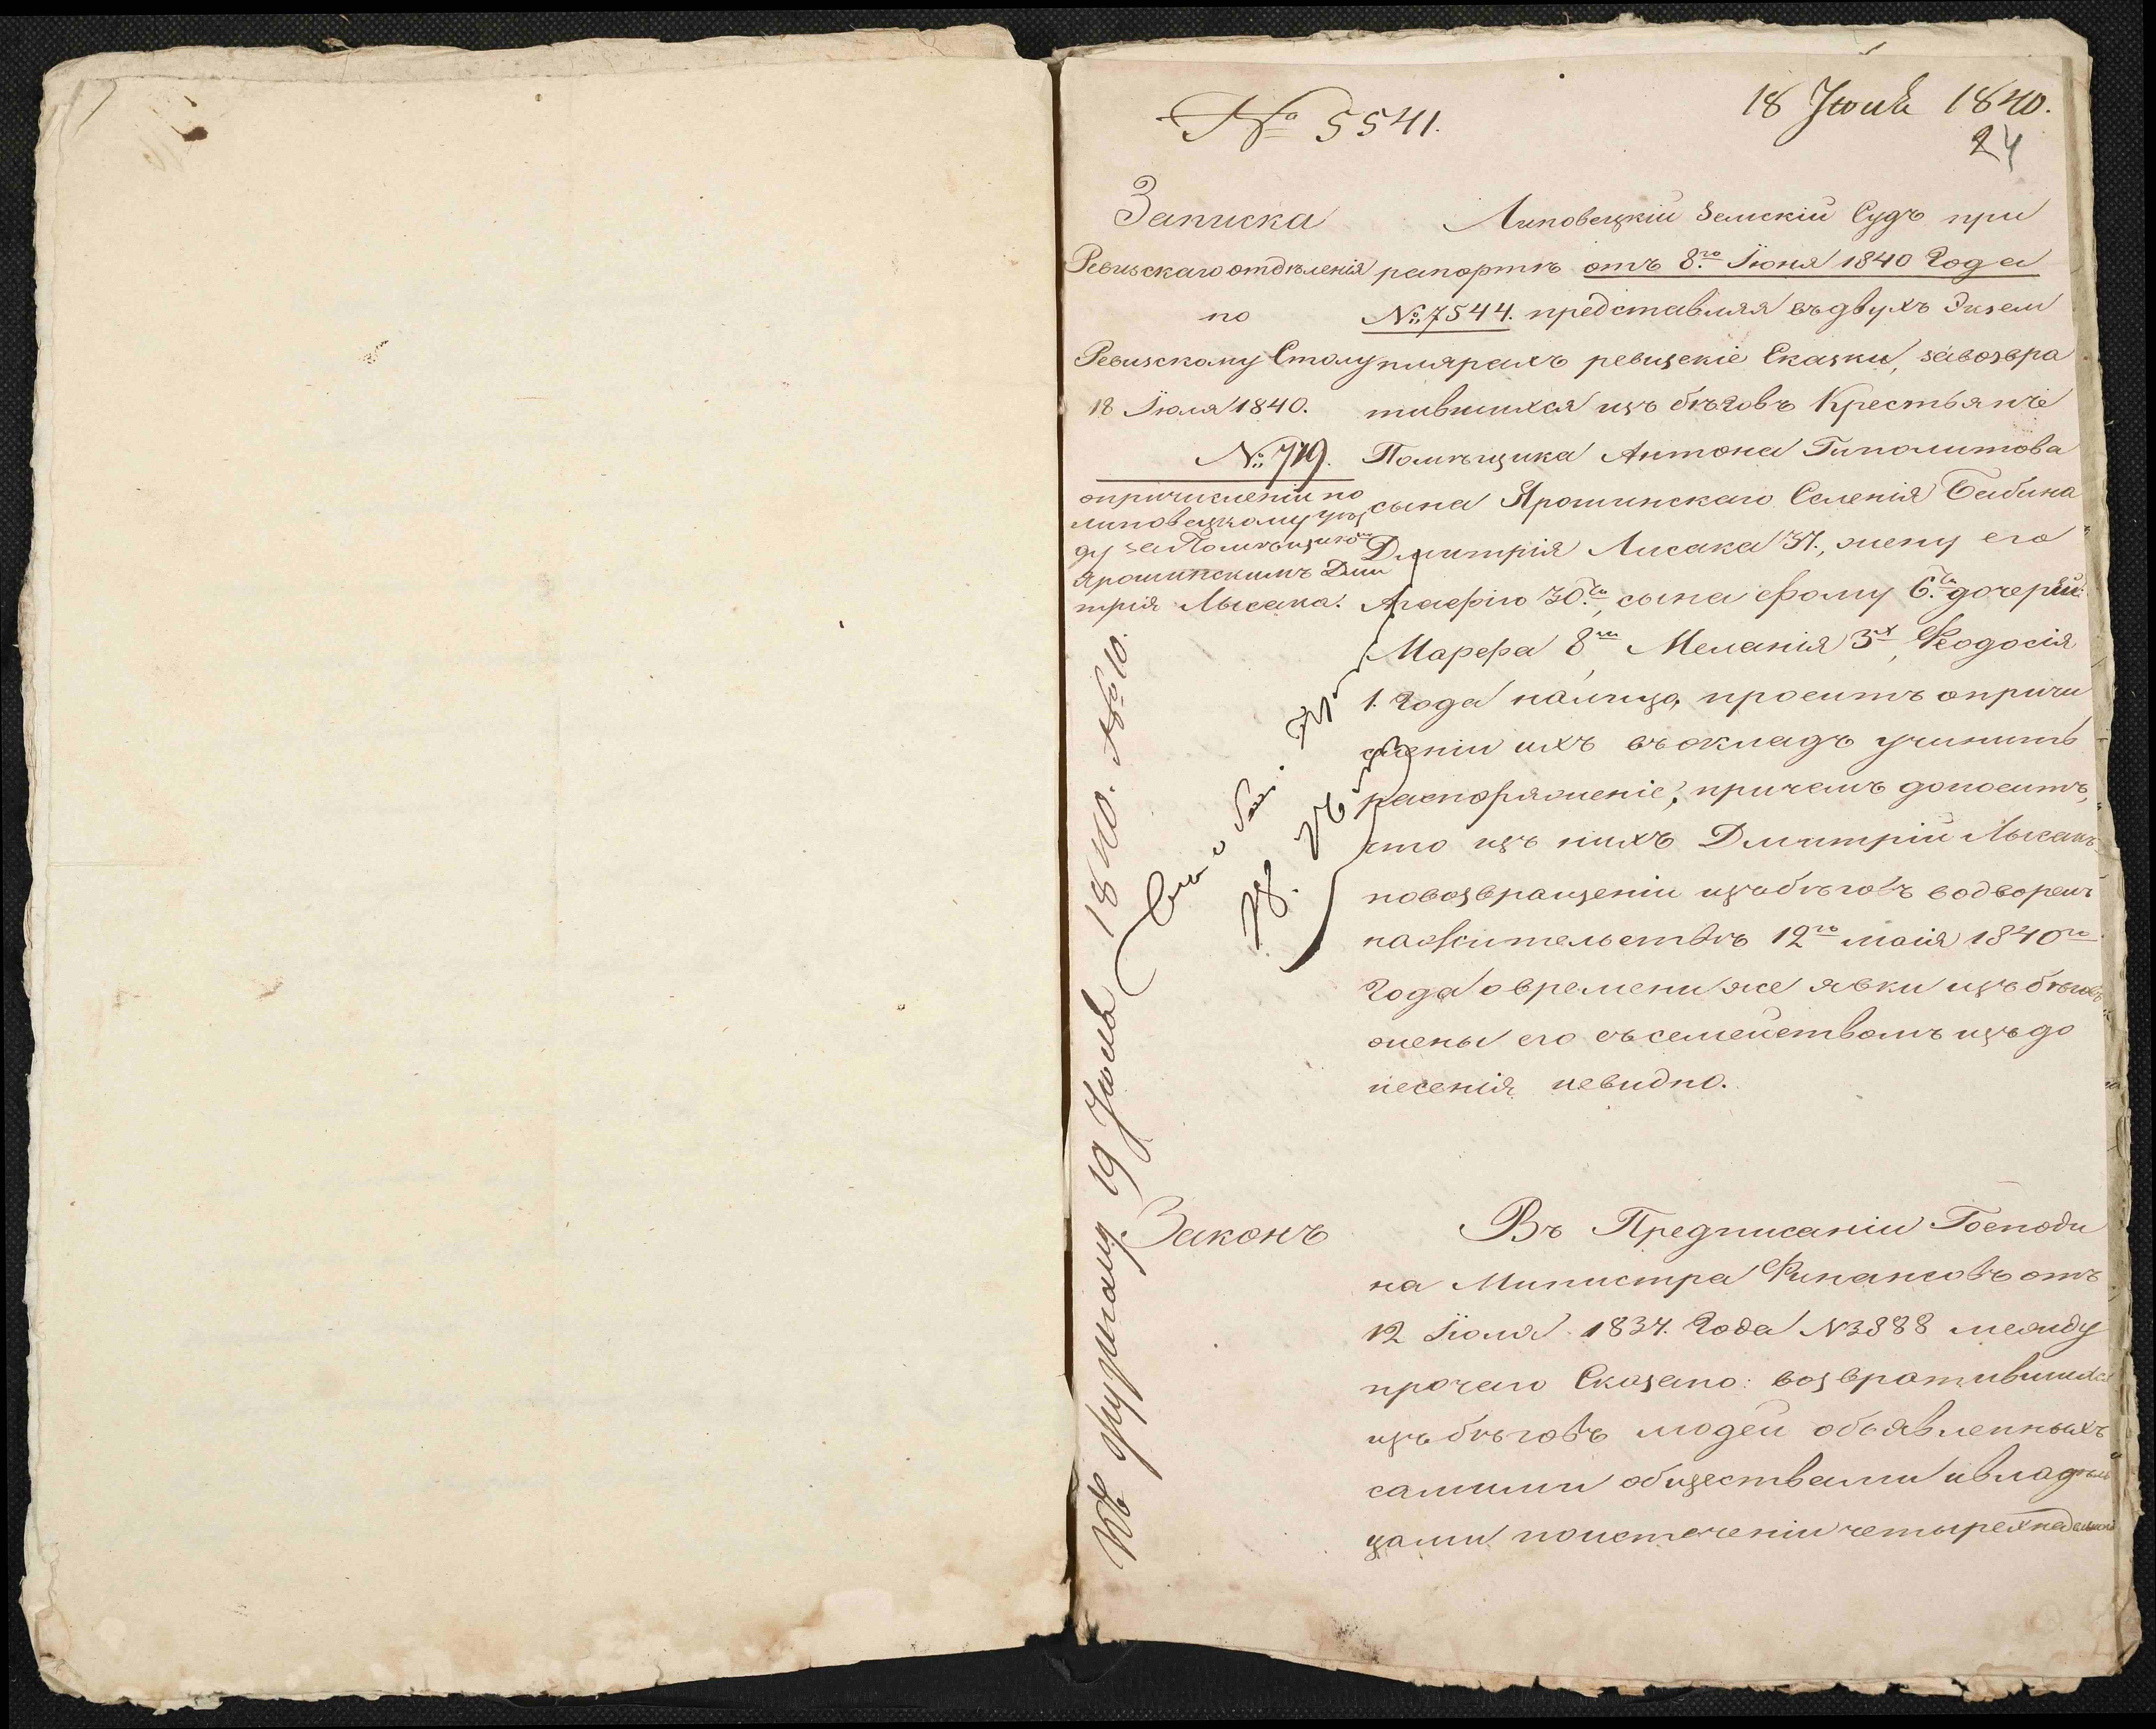 № 5541.
18 Июля 1840.
24
Записка
Ревизскаго отдѣленія
по
Ревизскому Столу
18 Іюля 1840.
№ 719.
о причисленіи по
липовецкому уѣз
ду за Помѣщикомъ
Ярошинскимъ Дми
трія Лысака.
Липовецкій Земскій Судъ при
рапортѣ отъ 8го Іюня 1840 Года
№ 7544. представляя въ двухъ Экзем
плярахъ ревизскіе Сказки, за возвра
тившихся изъ бѣговъ Крестьянъ
Помѣщика Антона Гиполитова
сына Ярошинскаго Селенія Бабина
Дмитрія Лисака 37., жену его
Агафію 30., сына Фому 6. дочерей:
Марфа 8 Меланія 3х, Феодосія
1. Года на лицо, проситъ о причи
сленіи ихъ въ окладъ учинить
распоряженіе; причемъ доноситъ,
что изъ нихъ Дмитрій Лысакъ
по возвращеніи изъ бѣговъ водворенъ
на жительствѣ 12го маія 1840го
Года о времени же явки изъ бѣговъ
жены его съ семействомъ изъ до
несенія невидно.
Законъ
Въ Предписаніи Господи
на Министра Финансовъ отъ
12 Іюля 1834. Года № 3888 между
прочаго Сказано: возвратившихся
изъ бѣговъ людей объявленныхъ
самими обществами и владѣль
цами по истеченіи четырехнедельнаго
Къ 19 Июля 1840. № 10.